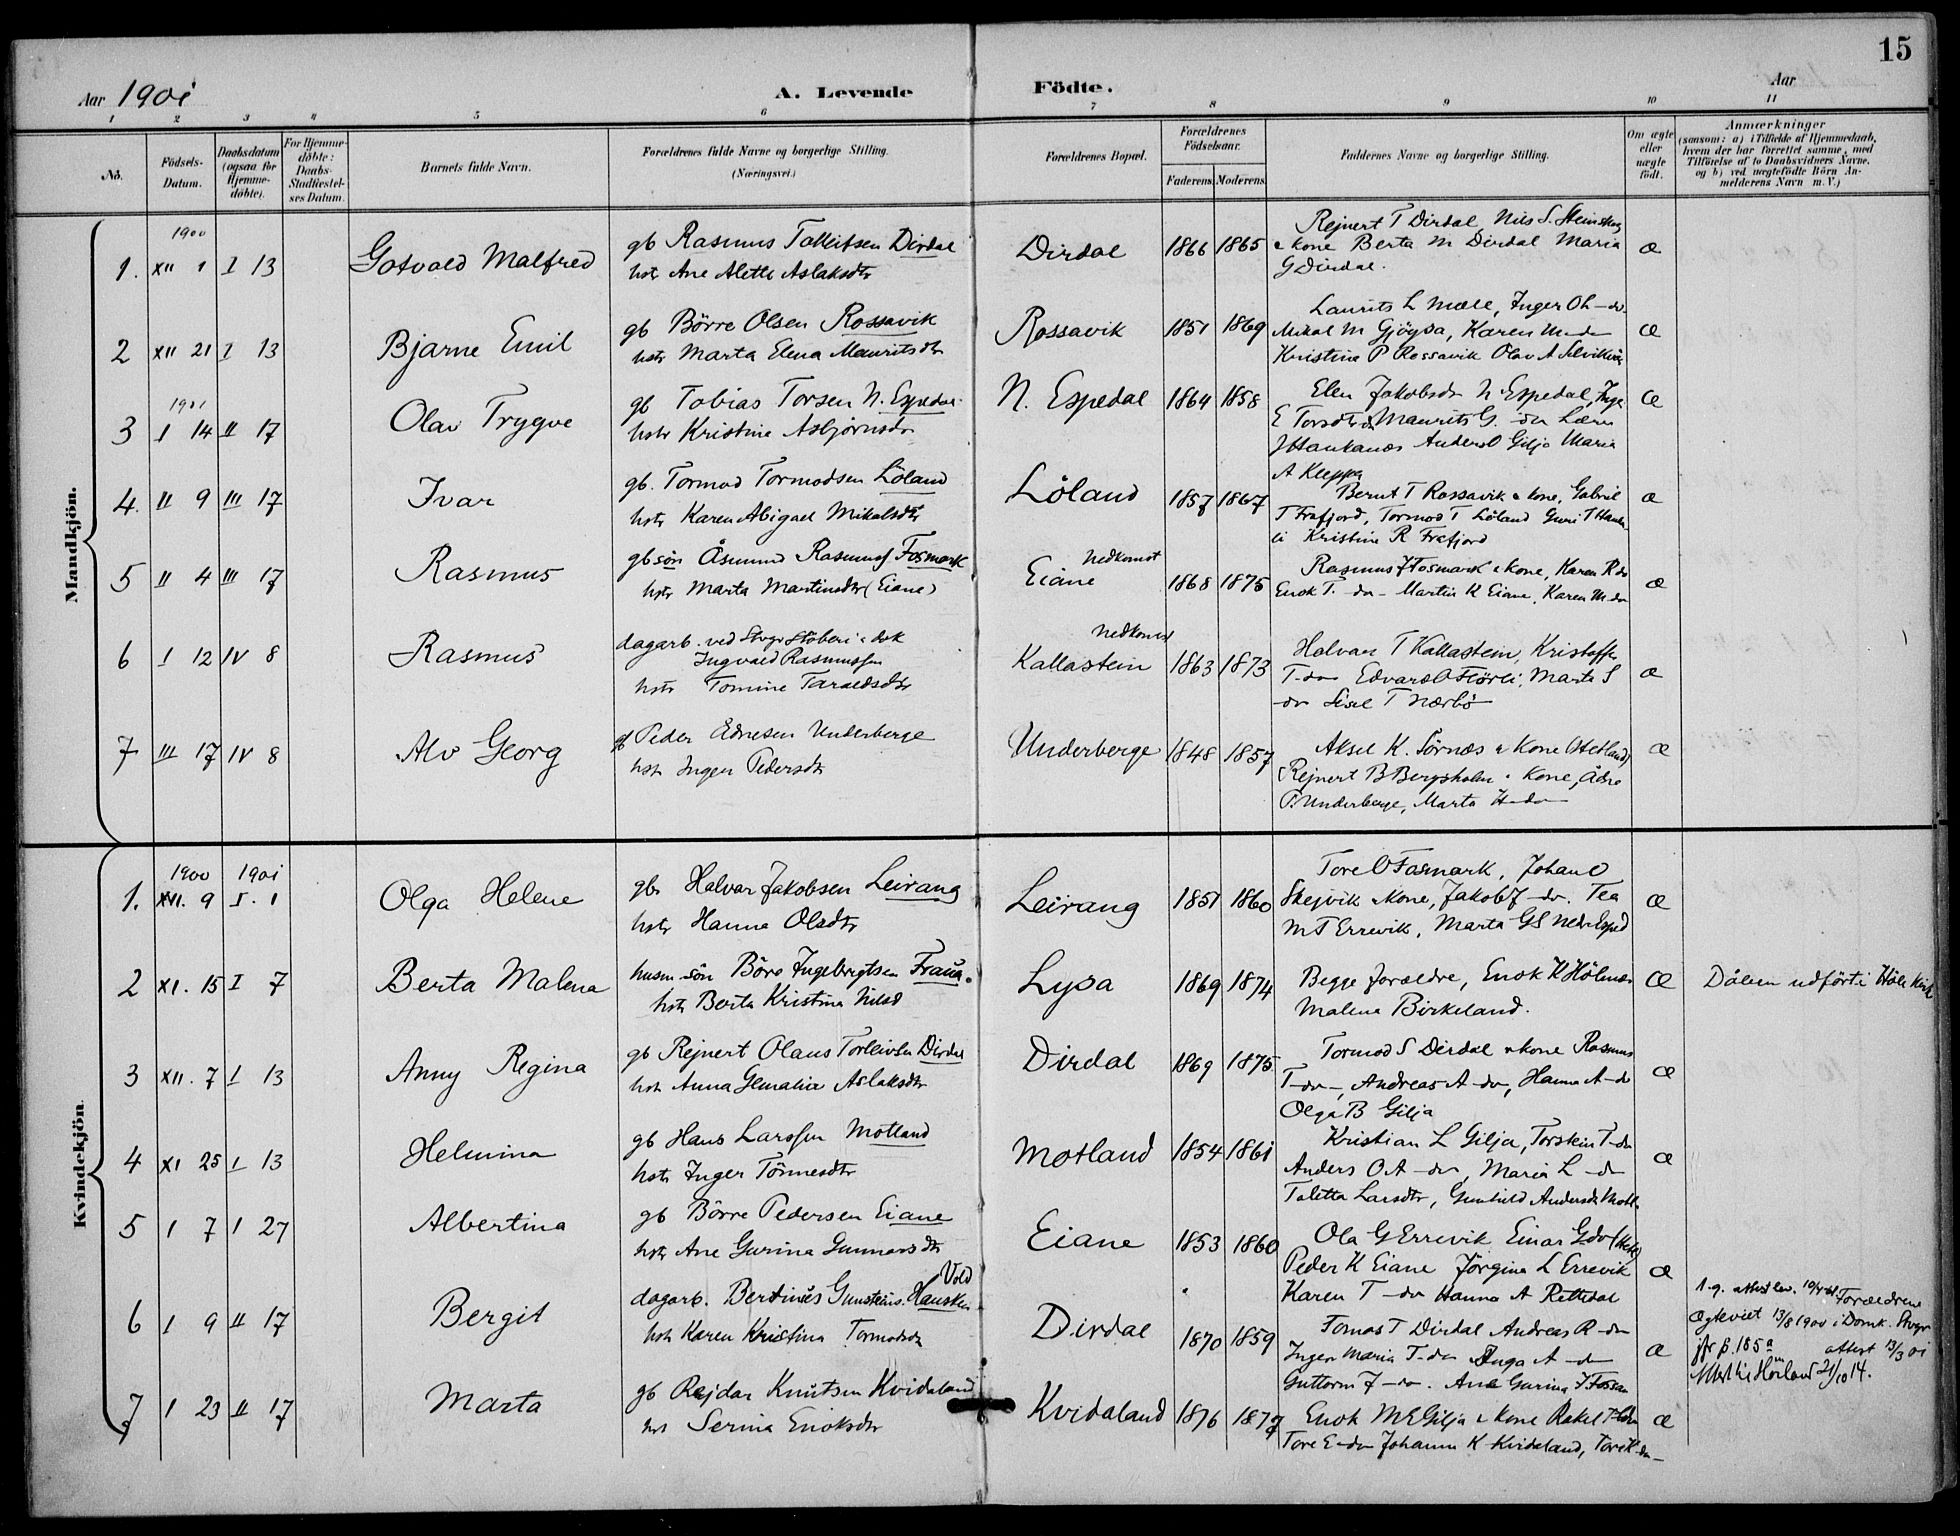 15
Aar 1901 A. Levende Födte. Aar
1 2 3 4 5 6 7 8 9 10 11
No.
Födsels-
Datum.
Daabsdatum
(ogsaa for
Hjemme-
döbte).
For Hjemme-
döbte:
Daabs-
Stadfæstel-
ses Datum.
Barnets fulde Navn.
Forældrenes fulde Navne og borgerlige Stilling.
(Næringsvei.)
Forældrenes Bopæl.
Forældrenes
Födselsaar.
Faderens. Moderens.
Faddernes Navne og borgerlige Stilling.
Om ægte
eller
uægte
födt.
Anmærkninger
(saasom: a) i Tilfælde af Hjemmedaab,
hvem der har forrettet samme, med
Tilförelse af to Daabsvidners Navne,
og b) ved uægtefödte Börn An-
melderens Navn m. V.)
Mandkjön.
1900
1. XII 1 I 13 Gotvald Malfred
gb Rasmus Tolleifsen Dirdal
hstr Ane Alette Aslaksdtr
Dirdal 1866 1865
Rejnert T Dirdal, Nils S.
& kone Berta M Dirdal Maria
G Dirdal.
æ
2 XII 21 I 13 Bjarne Emil
gb Börre Olsen Rossavik
hstr Marta Elena Mauritsdtr
Rossavik 1851 1869
Laurits L Mæle, Inger Oh-do.
Mikal M Gjöysa, Karen M-do
Kristine P Rossavik Olav A
æ
1901
3 I 14 II 17 Olav Trygve
gb Tobias Torsen N. Espedal
hstr Kristine Asbjörnsdtr
N. Espedal 1864 1858
Elen Jakobsdr N Espedal, Inga
E Torsdtr do Mauritz G. do
Anders O Gilja Maria
A Kleppa
æ
4. II 9 III 17 Ivar
gb. Tormod Tormodsen Löland
hstr Karen Abigael Mikalsdtr
Löland 1857 1867
Bernt T Rossavik & kone, Gabriel
T Frafjord, Tormod T Löland Guri T
Kristine R Frafjord
æ
5 II 4 III 17 Rasmus
gb sön Åsmund Rasmuss Fosmark
hstr Marta Martinsdtr (Eiane)
Nedkomst
Eiane 1868 1875
Rasmus J Fosmark & kone, Karen R do
Enok T. - do - Martin K Eiane, Karen M-do
æ
6 I 12 IV 8 Rasmus
dagarb. ved Stvgr Stöberi & dok
Ingvald Rasmussen
hstr Tomine Taraldsdtr
Nedkomst
Kallastein 1863 1873
Halvar T Kallastein, Kristoffer
T-do Edvard O Flörli, Marta S
-do Sisel T Nærbö
æ
7 III 17 IV 8 Alv Georg
gb Peder Ådnesen Underberge
hstr Inger Pedersdtr
Underberge 1848 1857
Aksel K. Sörnæs & Kone (Hetland)
Rejnert B Bergsholm & Kone, Ådne
P. Underberge, Marta H-do
æ
Kvindekjön.
1900 1901
1. XII. 9 I. 1 Olga Helene
gbr Halvar Jakobsen Leirang
hstr Hanna Olsdtr
Leirang 1851 1860
Tore O Fosmark, Johan O
Skejvik & kone, Jakob J-do. Tea
M T Errevik, Marta G S
æ
2 XI. 15 I 7 Berta Malena
husm-sön Böre Ingebrigtsen
hstr Berta Kristina Nilsd
Lysa 1869 1874
Begge forældre, Enok K
Malena Birkeland.
æ
Dåben udfört i Höle Kirk
3 XII. 7 I 13 Anny Regina
gb Rejnert Olaus Torleivsen Dirdal
hstr Anna Gemalia Aslaksdtr
Dirdal 1869 1875
Tormod S Dirdal & kone Rasmus
T-do-, Andreas A-do, Hanna A-do
Olga B Gilja
æ
4 XI 25 I 13 Helmina
gb Hans Larssen Motland
hstr Inger Tönnesdtr
Motland 1854 1861
Kristian L Gilja, Torstein T-do
Anders O A-do, Maria L-do
Taletta Larsdtr, Gunhild Andersdtr Motl.
æ
5 I 7 I 27 Albertina
gb Börre Pedersen Eiane
hstr Ane Gurina Gunnarsdtr
Eiane 1853 1860
Ola G Errevik Einar G do
Peder K Eiane Jörgina L Errevik
Karen T-do Hanna A Rettedal
æ
6 I 9 II 17 Bergit
Vold
dagarb. Bertines Gunsteins. Hausken
hstr Karen Kristina Tormodsdtr
Dirdal 1870 1859
Tomas T Dirdal Andreas R-do
Inger Maria T-do Inga A-do
Guttorm J-do. Ane Gurina J Fossan
æ
Forældrene
ægteviet 13/8 1900 i Domk. Stvgr
jfr p. 185 a attest 13/3 01
21/10 14.
7 I 23 II 17 Marta
gb Rejdar Knutsen Kvidaland
hst Serina Enoksdtr
Kvidaland 1876 1877
Enok M E Gilja & Kone Rakel T-do
Tore E-do Johanna K Kvidaland, Tore K-do-
æ